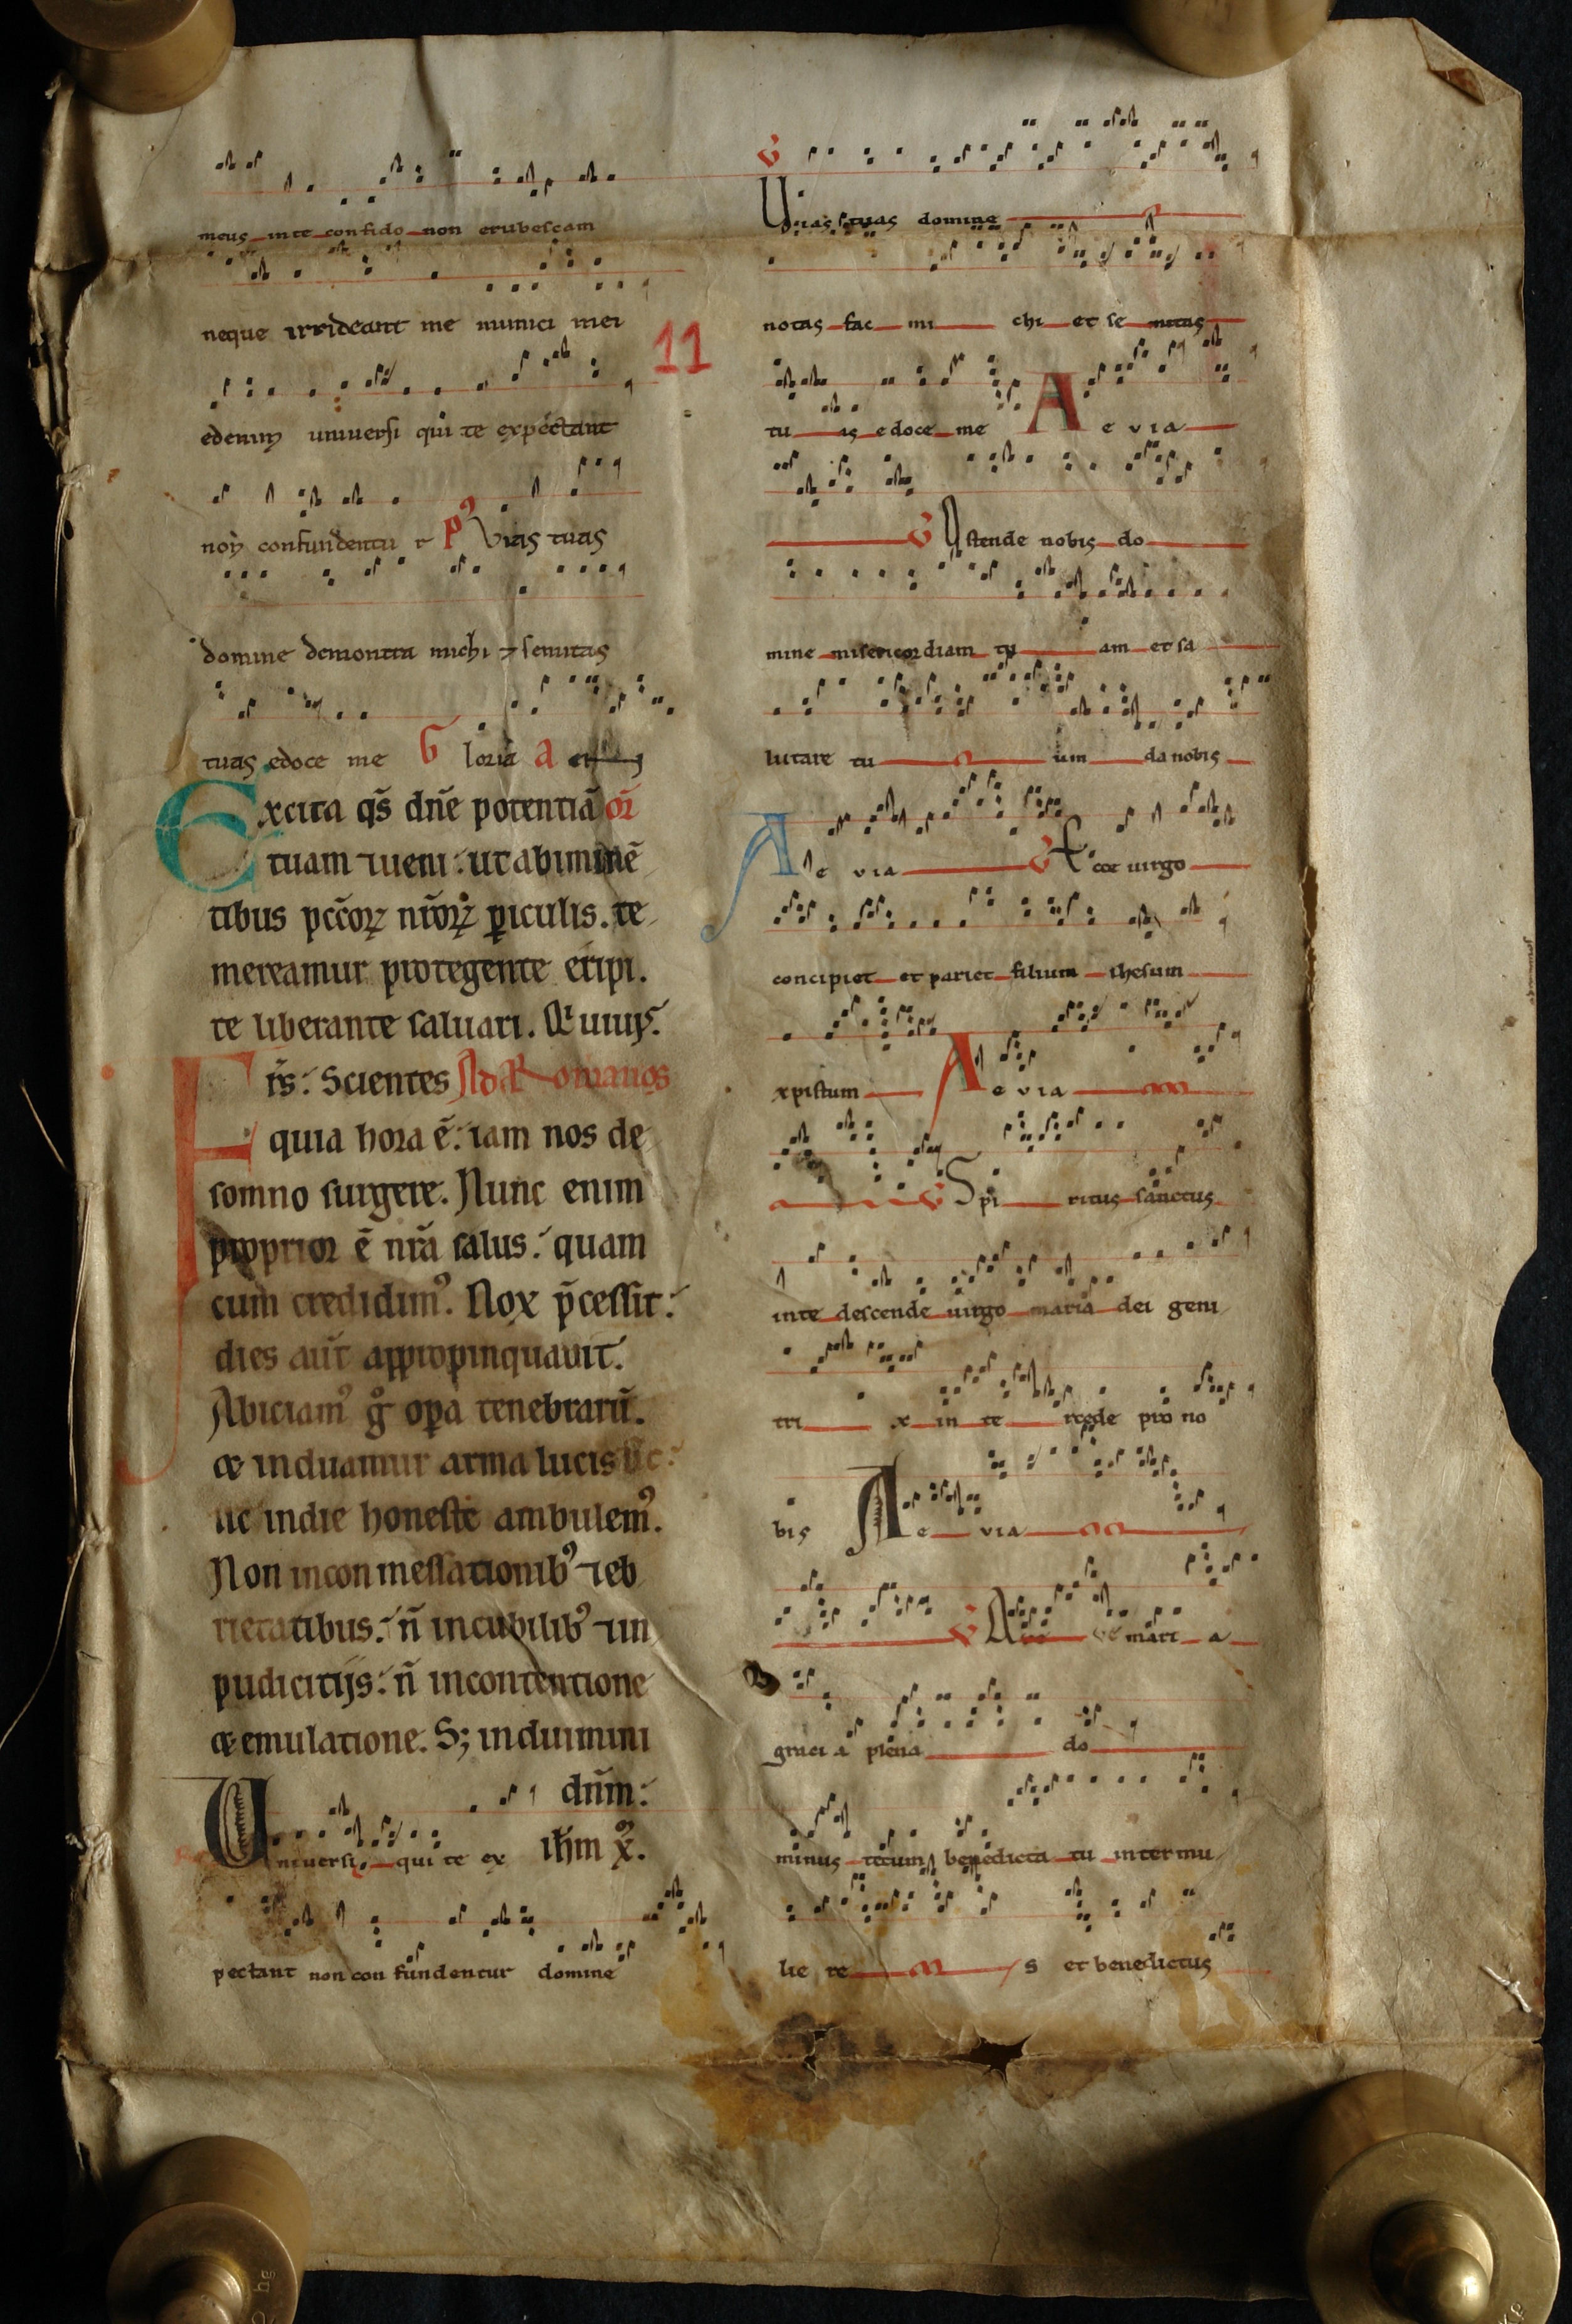 meus inte confido non erubescam
neque irrideant me inimici mei
11
eteniꝫ uniuersi qui te expectant
noɳ confundentu r pꝰ Vias tuas
domine demonstra michi ⁊ semitas
tuas edoce me G loria a
Excita qs̄ dn̄e potentiā or̄
tuam ⁊ueni: ut abiminē
tibus pcc̄oꝝ nr̄oꝝ ꝑiculis. te
mereamur protegente eripi.
te liberante saluari. Q̄ uiuis.
Fr̄s: Scientes Ad Romanos
quia hora ē: iam nos de
somno surgere. Nunc enim
proprior ē nr̄a salus: quam
cum credidimꝰ. Nox p̄cessit:
dies aut̄ appropinquauit.
Abiciamꝰ gͦ oꝑa tenebrarū.
⁊ induamur arma lucis
ut indie honeste ambulemꝰ.
Non inconmessationibꝰ ⁊eb
rietatibus: n̄ incubilibꝰ ⁊in
pudicitijs: n̄ incontentione
⁊ emulatione. Sꝫ induimini
dn̄m:
ih̄m xꝰ.
Uniuersi qui te ex
pectant non con fundentur domine
V Uias tuas domine
notas fac mi chi et se mitas
tu as edoce me A e v i a
V Ostende nobis do
mine misericordiam tu am et sa
lutare tu um da nobis
A e v i a V Ecce uirgo
concipiet et pariet filium ihesum
xpistum A e v i a
V Spi ritus sanctus
inte descende uirgo maria dei geni
tri x in te rcede pro no
bis A e v i a
V A ue mari a
graci a plena do
minus tecum benedicta tu inter mu
lie re s et benedictus